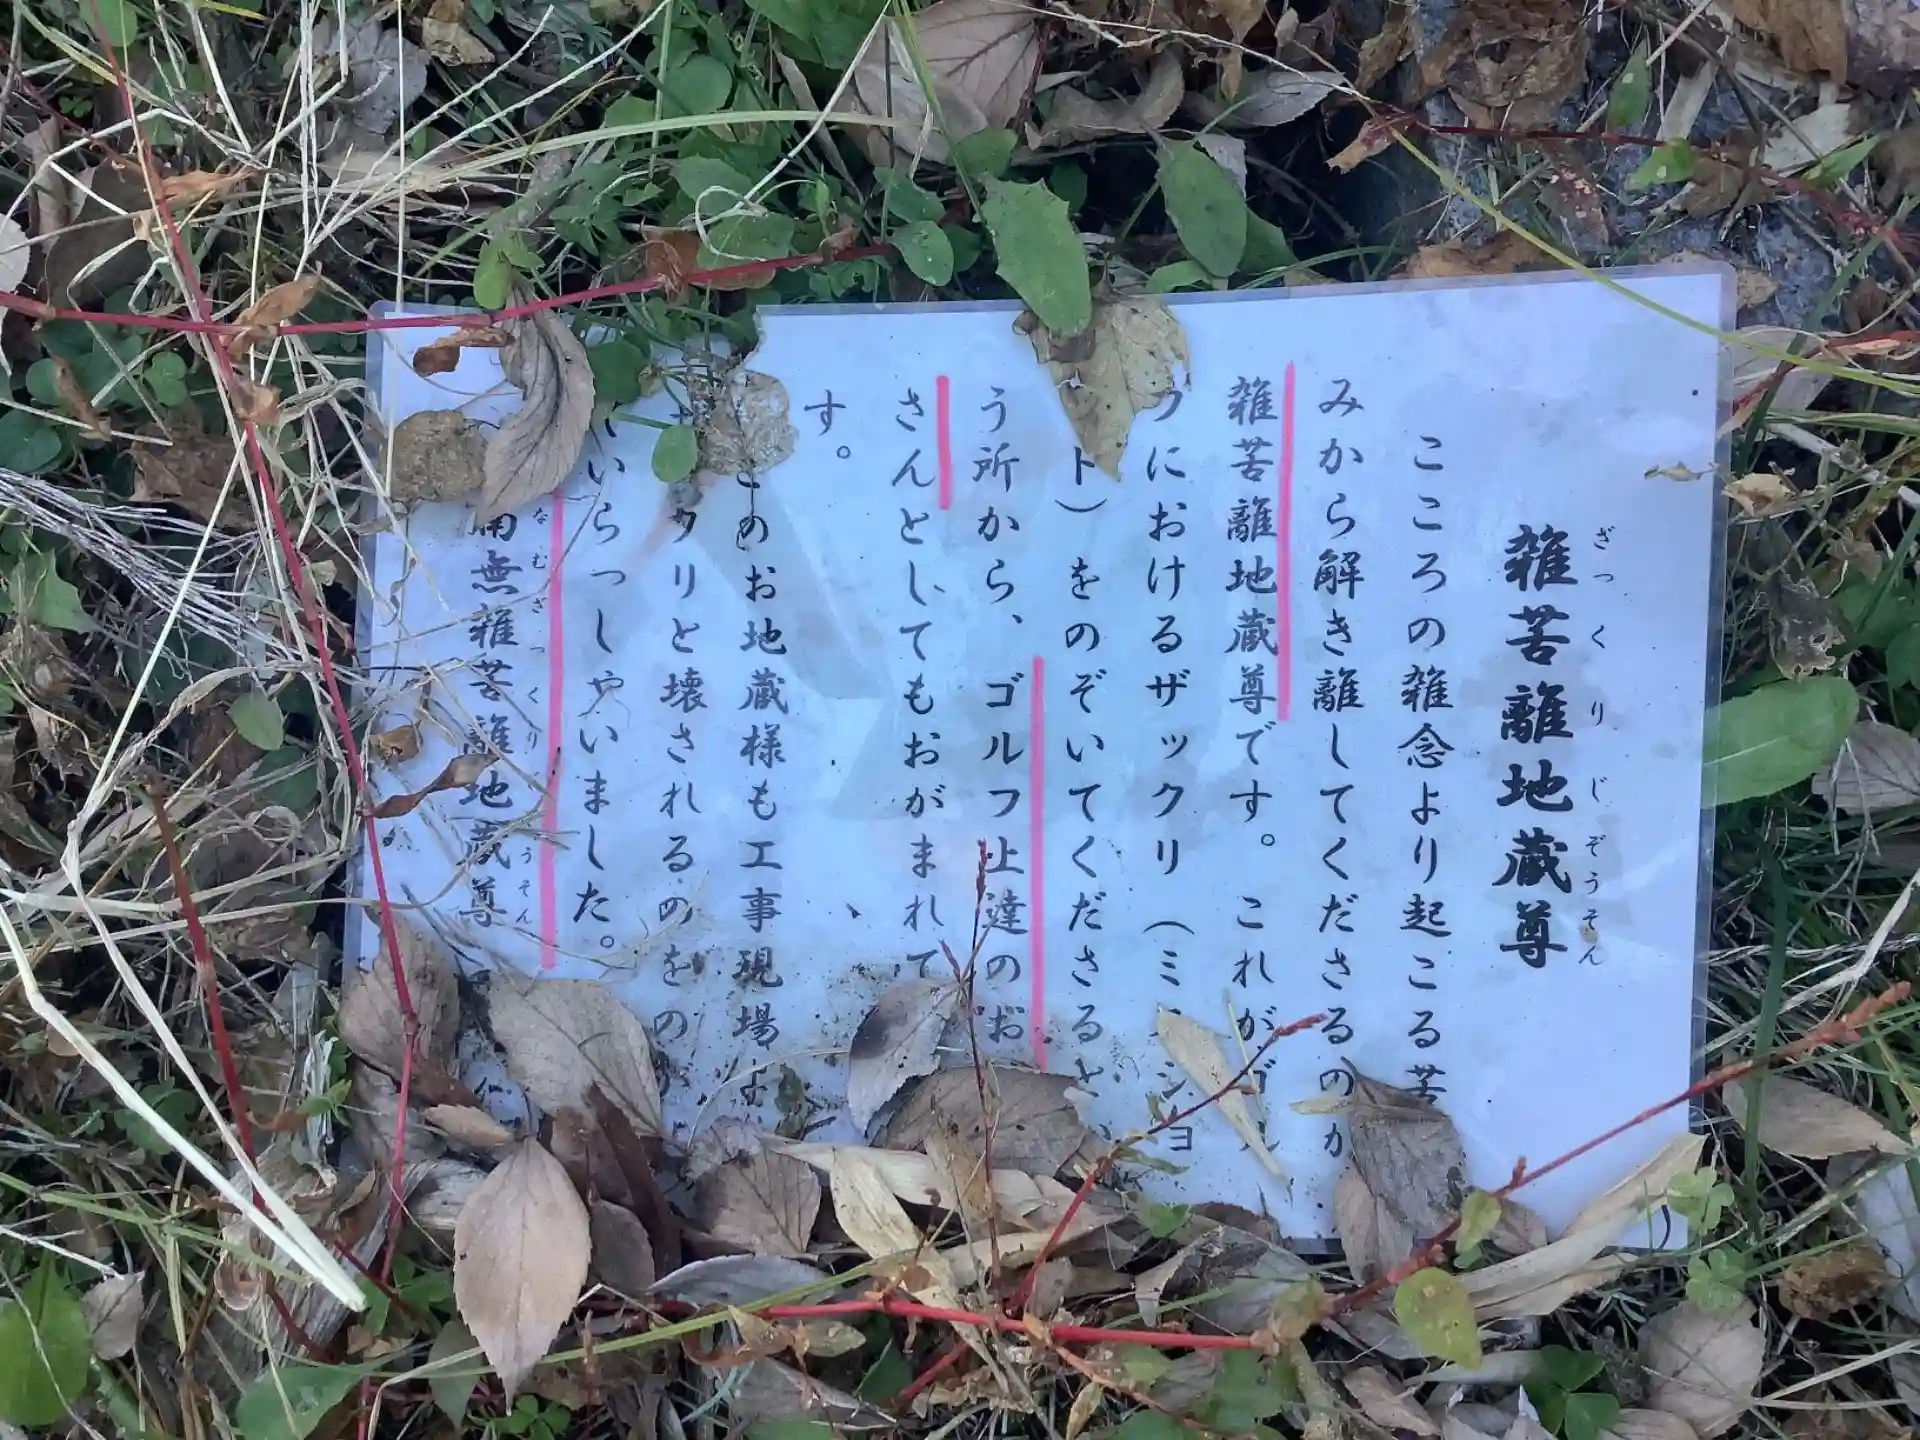 雑苦離地蔵尊
ざっくりじぞうそん
こころの雑念より起こる苦
みから解き離してくださるのが
雑苦離地蔵尊です。これがゴル
うにおけるザックリ（ミ ショ
ト）をのぞいてくださると
う所から、ゴルフ上達のお
さんとしてもおがまれて
す。
このお地蔵様も工事現場
クリと壊されるのをの
いらっしゃいました。
南無雑苦離地蔵尊
なむざっくり うそん